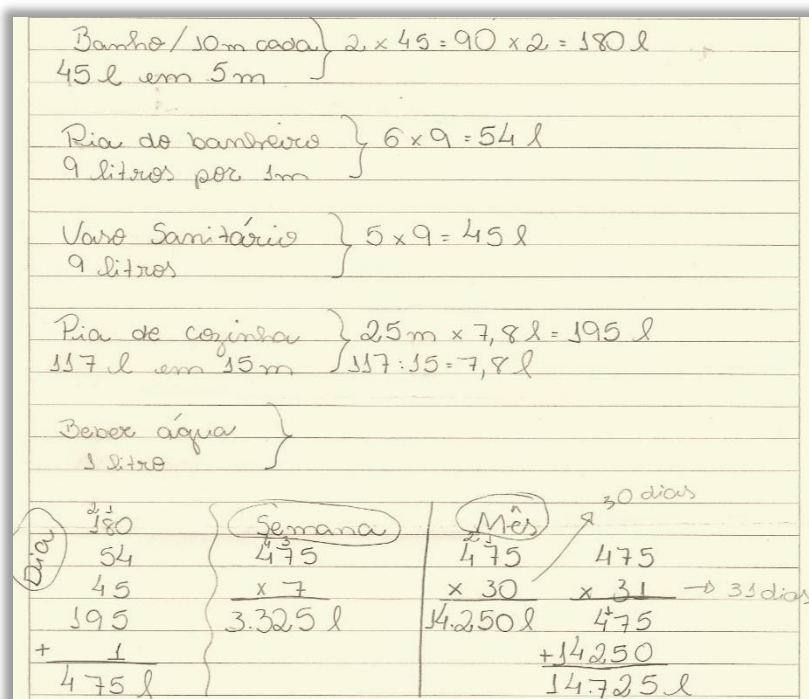 Banho / 10m cada } 2 x 45 = 90 x 2 = 180 l
45 l em 5m
Pia do banheiro } 6 x 9 = 54 l
9 litros por 1m
Vaso Sanitário } 5 x 9 = 45 l
9 litros
Pia de cozinha } 25m x 7,8 l = 195 l
117 l em 15m 117 : 15 = 7,8 l
Beber água }
1 litro
Dia
2 1
180
54
45
195
+ 1
475 l
Semana
4 3
475
x 7
3.325 l
Mês
30 dias
2 1
475
x 30
14.250 l
475
x 31 → 31 dias
1
475
+14250
14.725 l